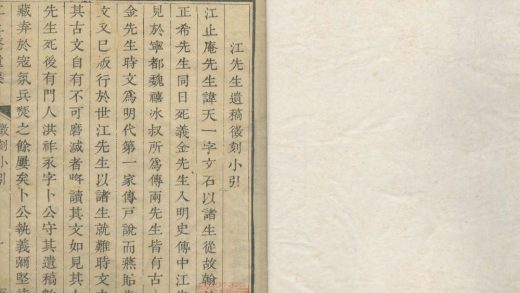 江先生遺稿徵刻小引
江止庵先生諱天一字文石以諸生從故翰
正希先生同日死義金先生入明史傳中江先
見於寧都魏禧冰叔所為傳兩先生皆有古
金先生時文為明代第一家傳戶說而燕貽
文又已板行於世江先生以諸生就難時文
其古文自有不可磨滅者時讀其文如見其人
先生死後有門人洪祚永字卜公守其遺稿
藏弆於寇氛兵燹之餘屢矣卜公執義彌堅
徵刻小引